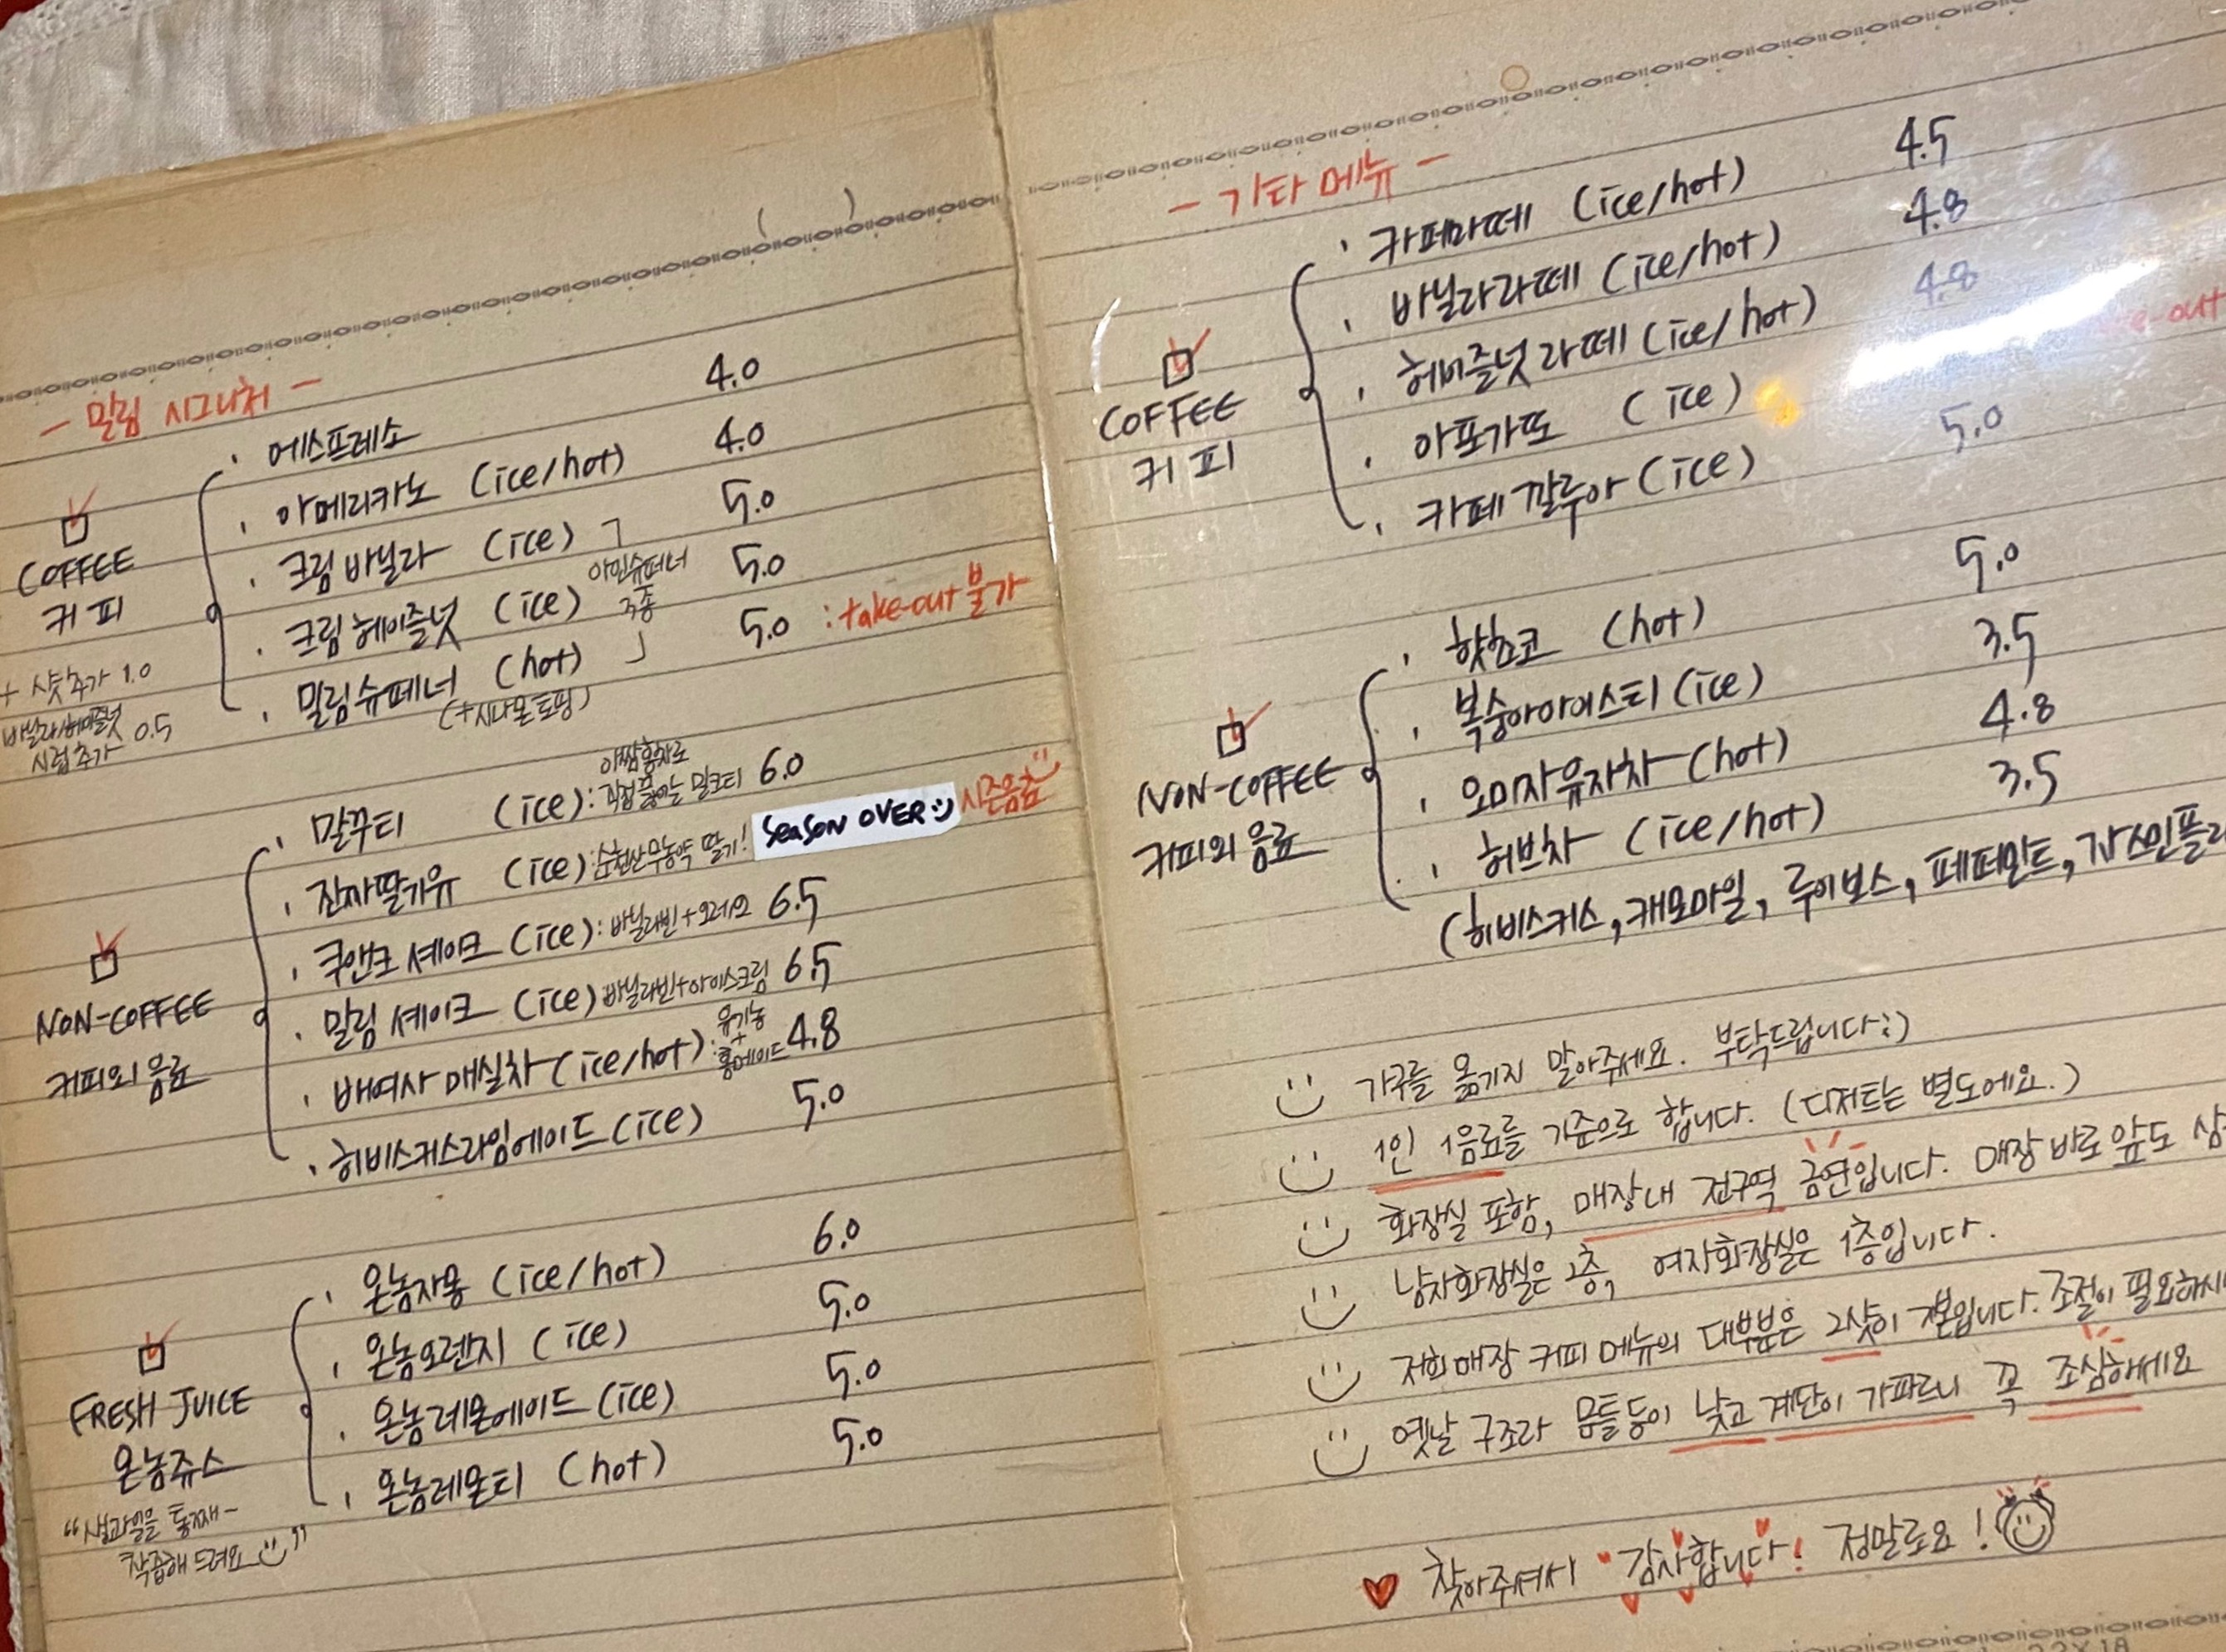 - 밀림 시그니처 -
COFFEE
커피
+ 샷추가 1.0
바닐라/헤이즐넛
시럽추가 0.5
· 에스프레소 4.0
· 아메리카노 (ice/hot) 4.0
· 크림바닐라 (ice) 5.0
· 크림헤이즐넛 (ice) 5.0
아인슈페너
3종
· 밀림슈페너 (hot) 5.0 : take-out 불가
(+시나몬토핑)
NON-COFFEE
커피외 음료
· 말꾸티 (ice) : 아쌈홍차로
직접 끓이는 밀크티 6.0
· 진짜딸기유 (ice) : 순천산무농약 딸기! SEASON OVER :) 시즌음료
· 쿠앤크 셰이크 (ice) : 바닐라빈+오레오 6.5
· 밀림 셰이크 (ice) 바닐라빈+아이스크림 6.5
· 배여사 매실차 (ice/hot) : 유기농
+
홈메이드 4.8
· 히비스커스라임에이드 (ice) 5.0
FRESH JUICE
온농쥬스
"생과일을 통째~
착즙해 드려요 "
· 온농자몽 (ice/hot) 6.0
· 온농오렌지 (ice) 5.0
· 온농레몬에이드 (ice) 5.0
· 온농레몬티 (hot) 5.0
- 기타 메뉴 -
COFFEE
커피
· 카페라떼 (ice/hot) 4.5
· 바닐라라떼 (ice/hot) 4.8
· 헤이즐넛라떼 (ice/hot) 4.8
· 아포가또 (ice)
· 카페깔루아 (ice) 5.0
NON-COFFEE
커피외 음료
· 핫초코 (hot) 5.0
· 복숭아아이스티 (ice) 3.5
· 오미자유자차 (hot) 4.8
· 허브차 (ice/hot) 3.5
(히비스커스, 캐모마일, 루이보스, 페퍼민트,
가구를 옮기지 말아주세요. 부탁드립니다:)
1인 1음료를 기준으로 합니다. (디저트는 별도에요.)
화장실 포함, 매장내 전구역 금연입니다. 매장 바로 앞도
남자화장실은 2층, 여자화장실은 1층입니다.
저희매장 커피 메뉴의 대부분은 2샷이 기본입니다. 조절이
옛날 구조라 문틀등이 낮고 계단이 가파르니 꼭 조심하세요
찾아주셔서 감사합니다! 정말로요!